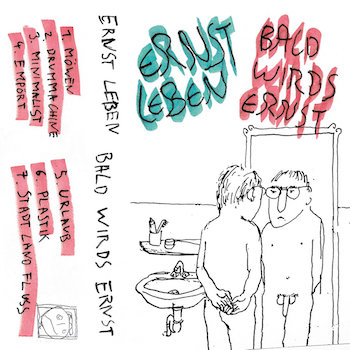 1. MÖWEN
2. DRUMMACHINE
3. MINIMALIST
4. EMPÖRT
5. URLAUB
6. PLASTIK
7. STADT LAND FLUSS
ERNST LEBEN BALD WIRDS ERNST
ERNST
LEBEN
BALD
WIRDS
ERNST